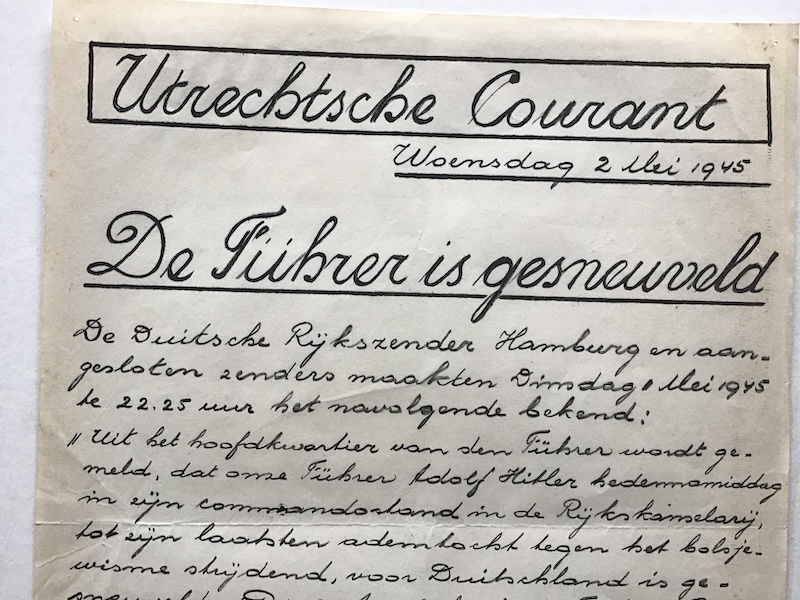 Utrechtsche Courant
Woensdag 2 Mei 1945
De Führer is gesneuveld
De Duitsche Rijkszender Hamburg en aan-
gesloten zenders maakten Dinsdag 1 Mei 1945
te 22.25 uur het navolgende bekend:
„Uit het hoofdkwartier van den Führer wordt ge-
meld, dat onze Führer Adolf Hitler hedennamiddag
in zijn commandostand in de Rijkskanselarij,
tot zijn laatsten ademtocht tegen het bolsje-
wisme strijdend, voor Duitschland is ge-